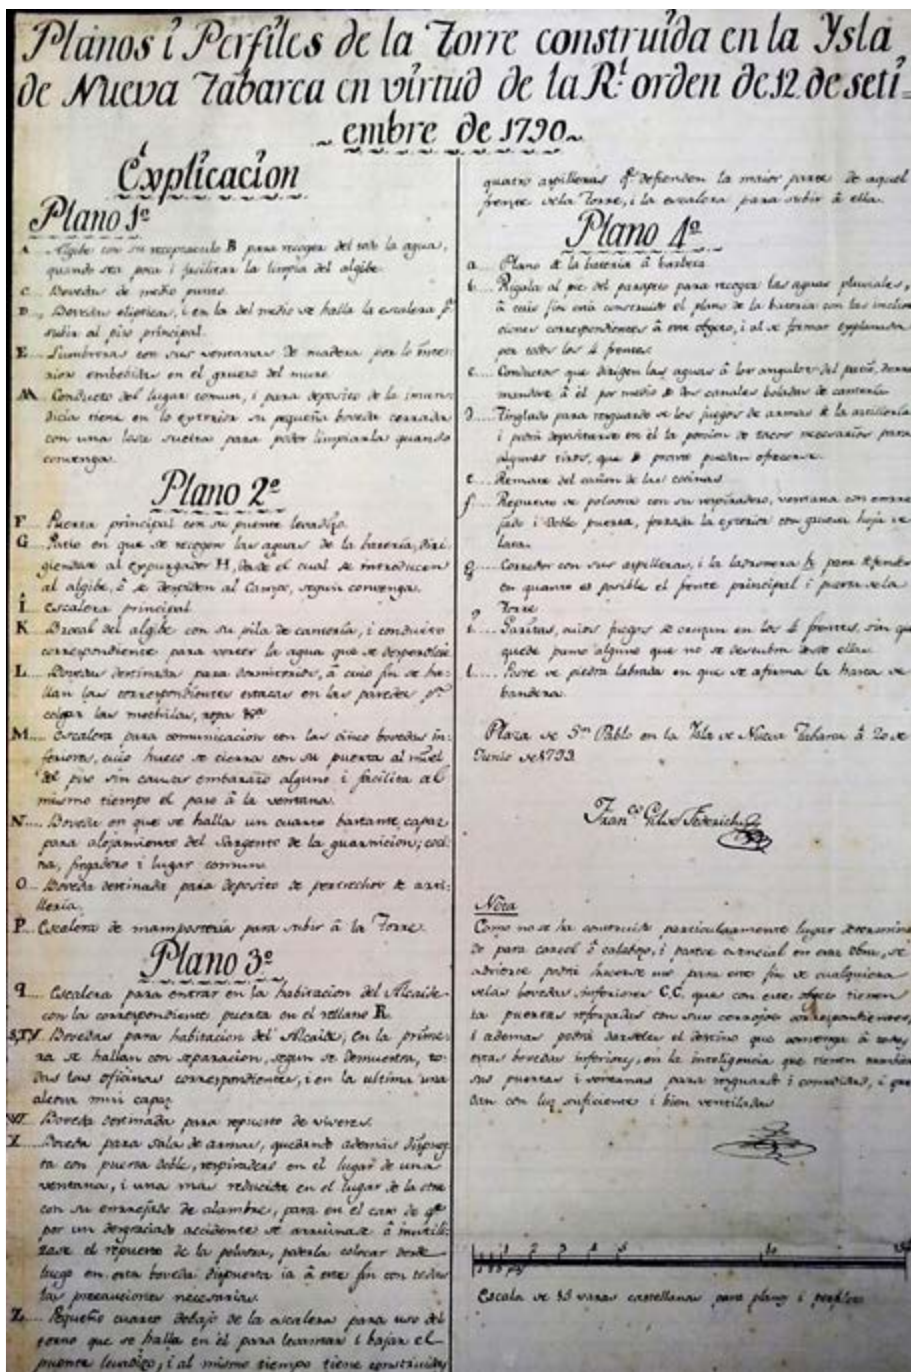 Planos i Perfiles de la Torre construida en la Ysla
de Nueva Tabarca en virtud de la Rl. orden de 12 de seti=
embre de 1790
Explicacion
Plano 1º
A... Algibe con su receptaculo B para recoger del todo la agua,
quando sea poca i facilitar la limpia del algibe
C... Bovedas de medio punto
D... Bovedas elipticas, i en la del medio se halla la escalera pª
subir al piso principal.
E... Lumbreras con sus ventanas de madera por lo inte=
rior embebidas en el grueso del muro
M. Conducto del lugar comun, i para deposito de la inmun=
dicia tiene en lo exterior su pequeña boveda cerrada
con una losa suelta para poder limpiarla quando
convenga.
Plano 2º
F... Puerta principal con su puente levadizo.
G... Patio en que se recogen las aguas de la bateria, diri=
giendose al expurgador H, desde el cual se introducen
al algibe, ô se despiden al Campo, segun convenga.
I... Escalera principal
K... Brocal del algibe con su pila de canteria, i conducto
correspondiente para verter la agua que se desperdicie
L... Bovedas destinadas para dormitorios, â cuio fin se ha=
llan las correspondientes estacas en las paredes pª
colgar las mochilas, ropa &ª
M... Escalera para comunicacion con las cinco bovedas in=
feriores, cuio hueco se cierra con su puerta al nivel
del piso sin causar embarazo alguno i facilita al
mismo tiempo el paso â la ventana.
N... Boveda en que se halla un cuarto bastante capaz
para alojamiento del Sargento de la guarnicion; coci=
na, fregadero i lugar comun
O... Boveda destinada para deposito de pertrechos de arti=
lleria.
P... Escalera de mamposteria para subir â la Torre
Plano 3º
q... Escalera para entrar en la habitacion del Alcaide
con la correspondiente puerta en el rellano R
S,T,V. Bovedas para habitacion del Alcaide; en la prime=
ra se hallan con separacion, segun se demuestra, to=
das las oficinas correspondientes, i en la ultima una
alcova mui capaz
Boveda destinada para repuesto de viveres.
X... Boveda para sala de armas, quedando además dispues=
ta con puerta doble, respiraderos en el lugar de una
ventana, i una mas reducida en el lugar de la otra
con su enrrejado de alambre, para en el caso de qe
por un desgraciado accidente se arruinase ô inutili=
zase el repuesto de la polvora, poderla colocar desde
luego en esta boveda dispuesta ia â este fin con todas
las precauciones necesarias.
Z... Pequeño cuarto debajo de la escalera para uso del
torno que se halla en él para levantar i bajar el
puente levadizo, i al mismo tiempo tiene construidas
quatro aspilleras qe. defienden la maior parte de aquel
frente de la Torre, i la escalera para subir â ella.
Plano 4º
a... Plano de la bateria â barbeta
b... Rigola al pie del parapeto para recoger las aguas pluviales,
â cuio fin está construido el plano de la bateria con las inclina
ciones correspondientes â este objeto, i al de formar explanada
por todos los 4 frentes.
c... Conductos que dirigen las aguas â los angulos del patio, derra
mandose â él por medio de dos canales boladas de canteria
d... Tinglado para resguardo de los juegos de armas de la artilleria
i podrá depositarse en él la porcion de tacos necesarios para
algunos tiros, que de pronto puedan ofrecerse.
e... Remate del cañon de las cocinas
f... Repuesto de polvora con su respiradero, ventana con enrre
jado i doble puerta, forrada la exterior con gruesa hoja de
lata.
g... Corredor con sus aspilleras, i la ladronera h para defender
en quanto es posible el frente principal i puerta de la
Torre
i... Garitas, cuios fuegos se cruzan en los 4 frentes, sin que
quede punto alguno que no se descubra desde ellas
l... Poste de piedra labrada en que se afirma la hasta de
bandera.
Plaza de Sn. Pablo en la Ysla de Nueva Tabarca â 20 de
Junio de 1793.
Franco. Gilve Federichi
Nota
Como no se ha construido particularmente lugar determina
do para carcel ô calabozo, i parece esencial en esta obra, se
advierte podrá hacerse uso para este fin de cualquiera
de las bovedas inferiores C.C. que con este objeto tienen
la puertas reforzadas con sus cerrojos correspondientes,
i ademas podrá darseles el destino que convenga â todas
estas bovedas inferiores, en la inteligencia que tienen tambien
sus puertas i ventanas para resguardo i comodidad, i que
dan con luz suficiente i bien ventiladas
1 2 3 4 5 10 15
Escala de 15 varas castellanas para planos i perfiles